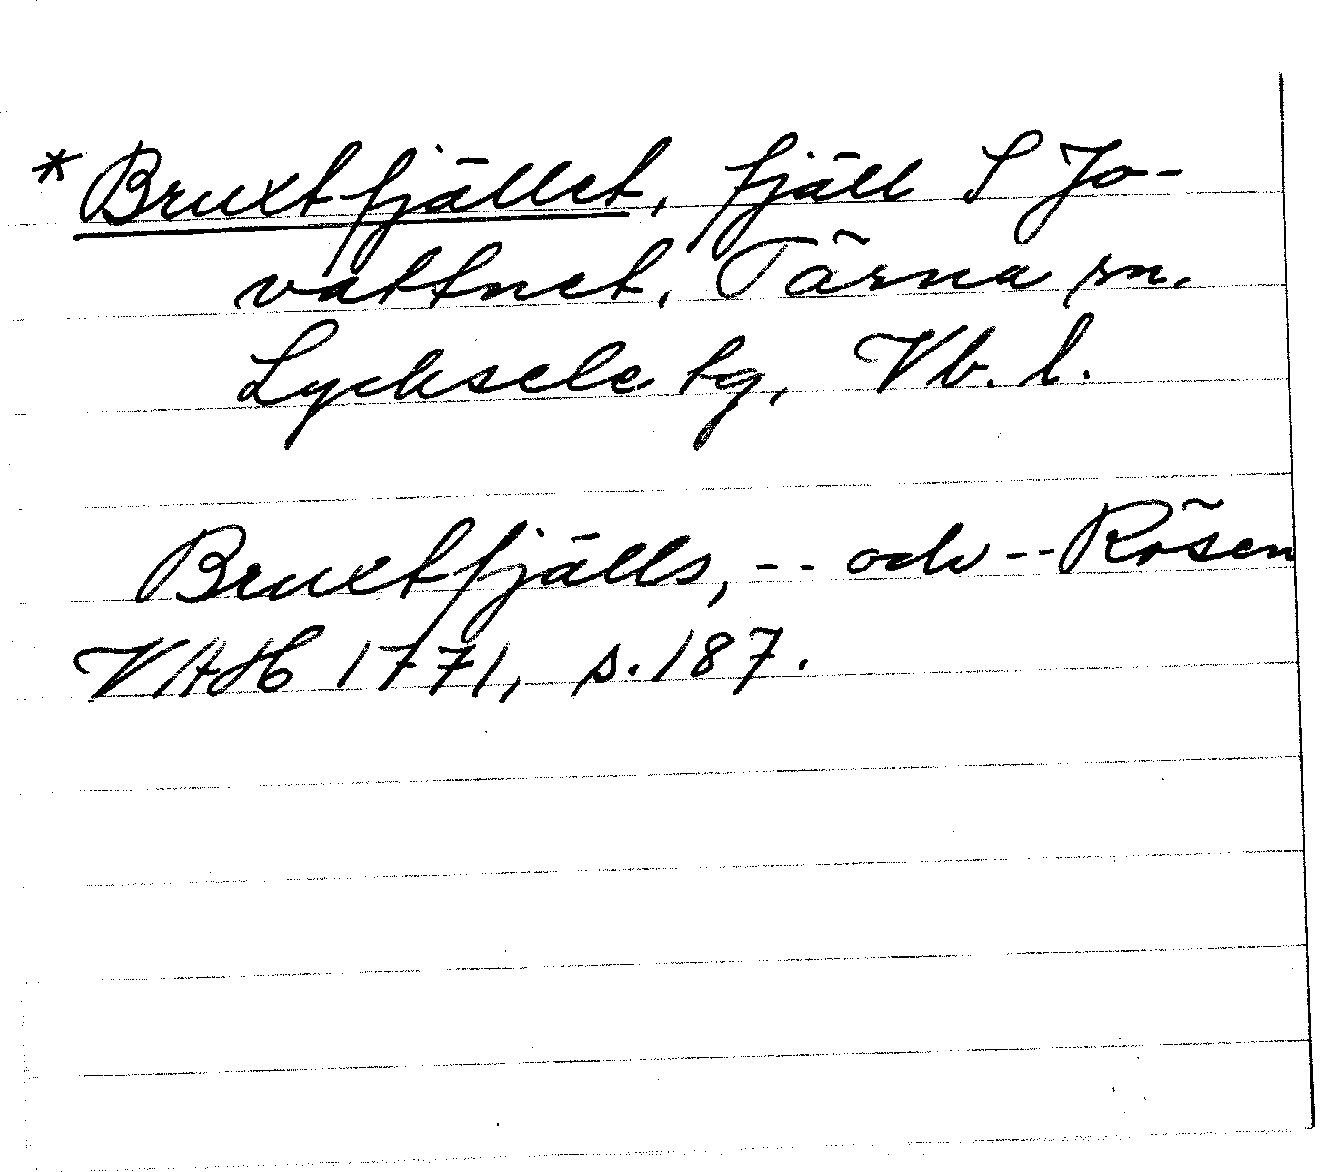 * Bruxtfjället, fjäll S Jo-
vattnet, Tärna sn.
Lycksele tg, Vb. l.
Bruxtfjälls, -- och -- Rösen
VAH 1771, s. 187.